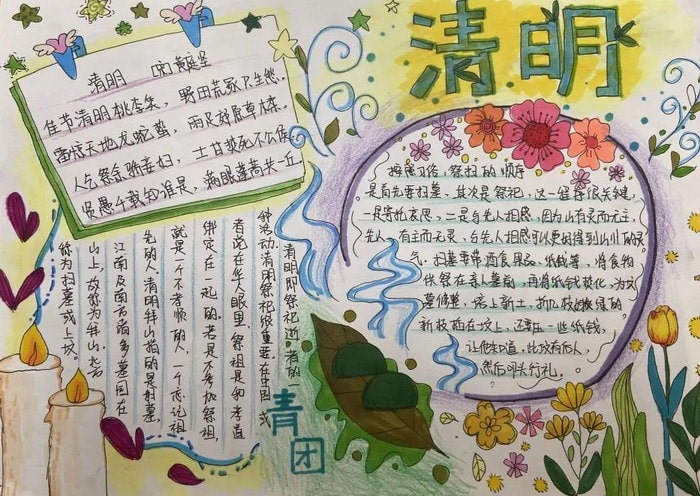 清明
清明 [宋]黄庭坚
佳节清明桃李笑，野田荒冢只生愁。
雷惊天地龙蛇蛰，雨足郊原草木柔。
人乞祭余骄妾妇，士甘焚死不公侯
贤愚千载知谁是，满眼蓬蒿共一丘
按照习俗，祭扫的顺序
是首先要扫墓，其次是祭祀，这一程序很关键，
一是寄托哀思，二是与先人相感，因为山有灵而无主，
先人有主而无灵，与先人相感可以更好得到山川的灵
气。扫墓要带酒食果品、纸钱等，将食物
供祭在亲人墓前，再将纸钱焚化，为坟
墓修整，培上新土，折几枝嫩绿的
新枝插在坟上，还要压一些纸钱，
让他人知道，此坟有后人，
然后叩头行礼。
清明即祭祀逝者的一
种活动，清明祭祀很重要。在中国 或
者说在华人眼里，祭祖是和孝道
绑定在一起的，若是不参加祭祖，
就是一个不孝顺的人，一个忘记祖
先的人。清明拜山指的是祭墓，
江南及南方诸多墓园在
山上，故称为拜山，北方
称为扫墓或上坟。
青团